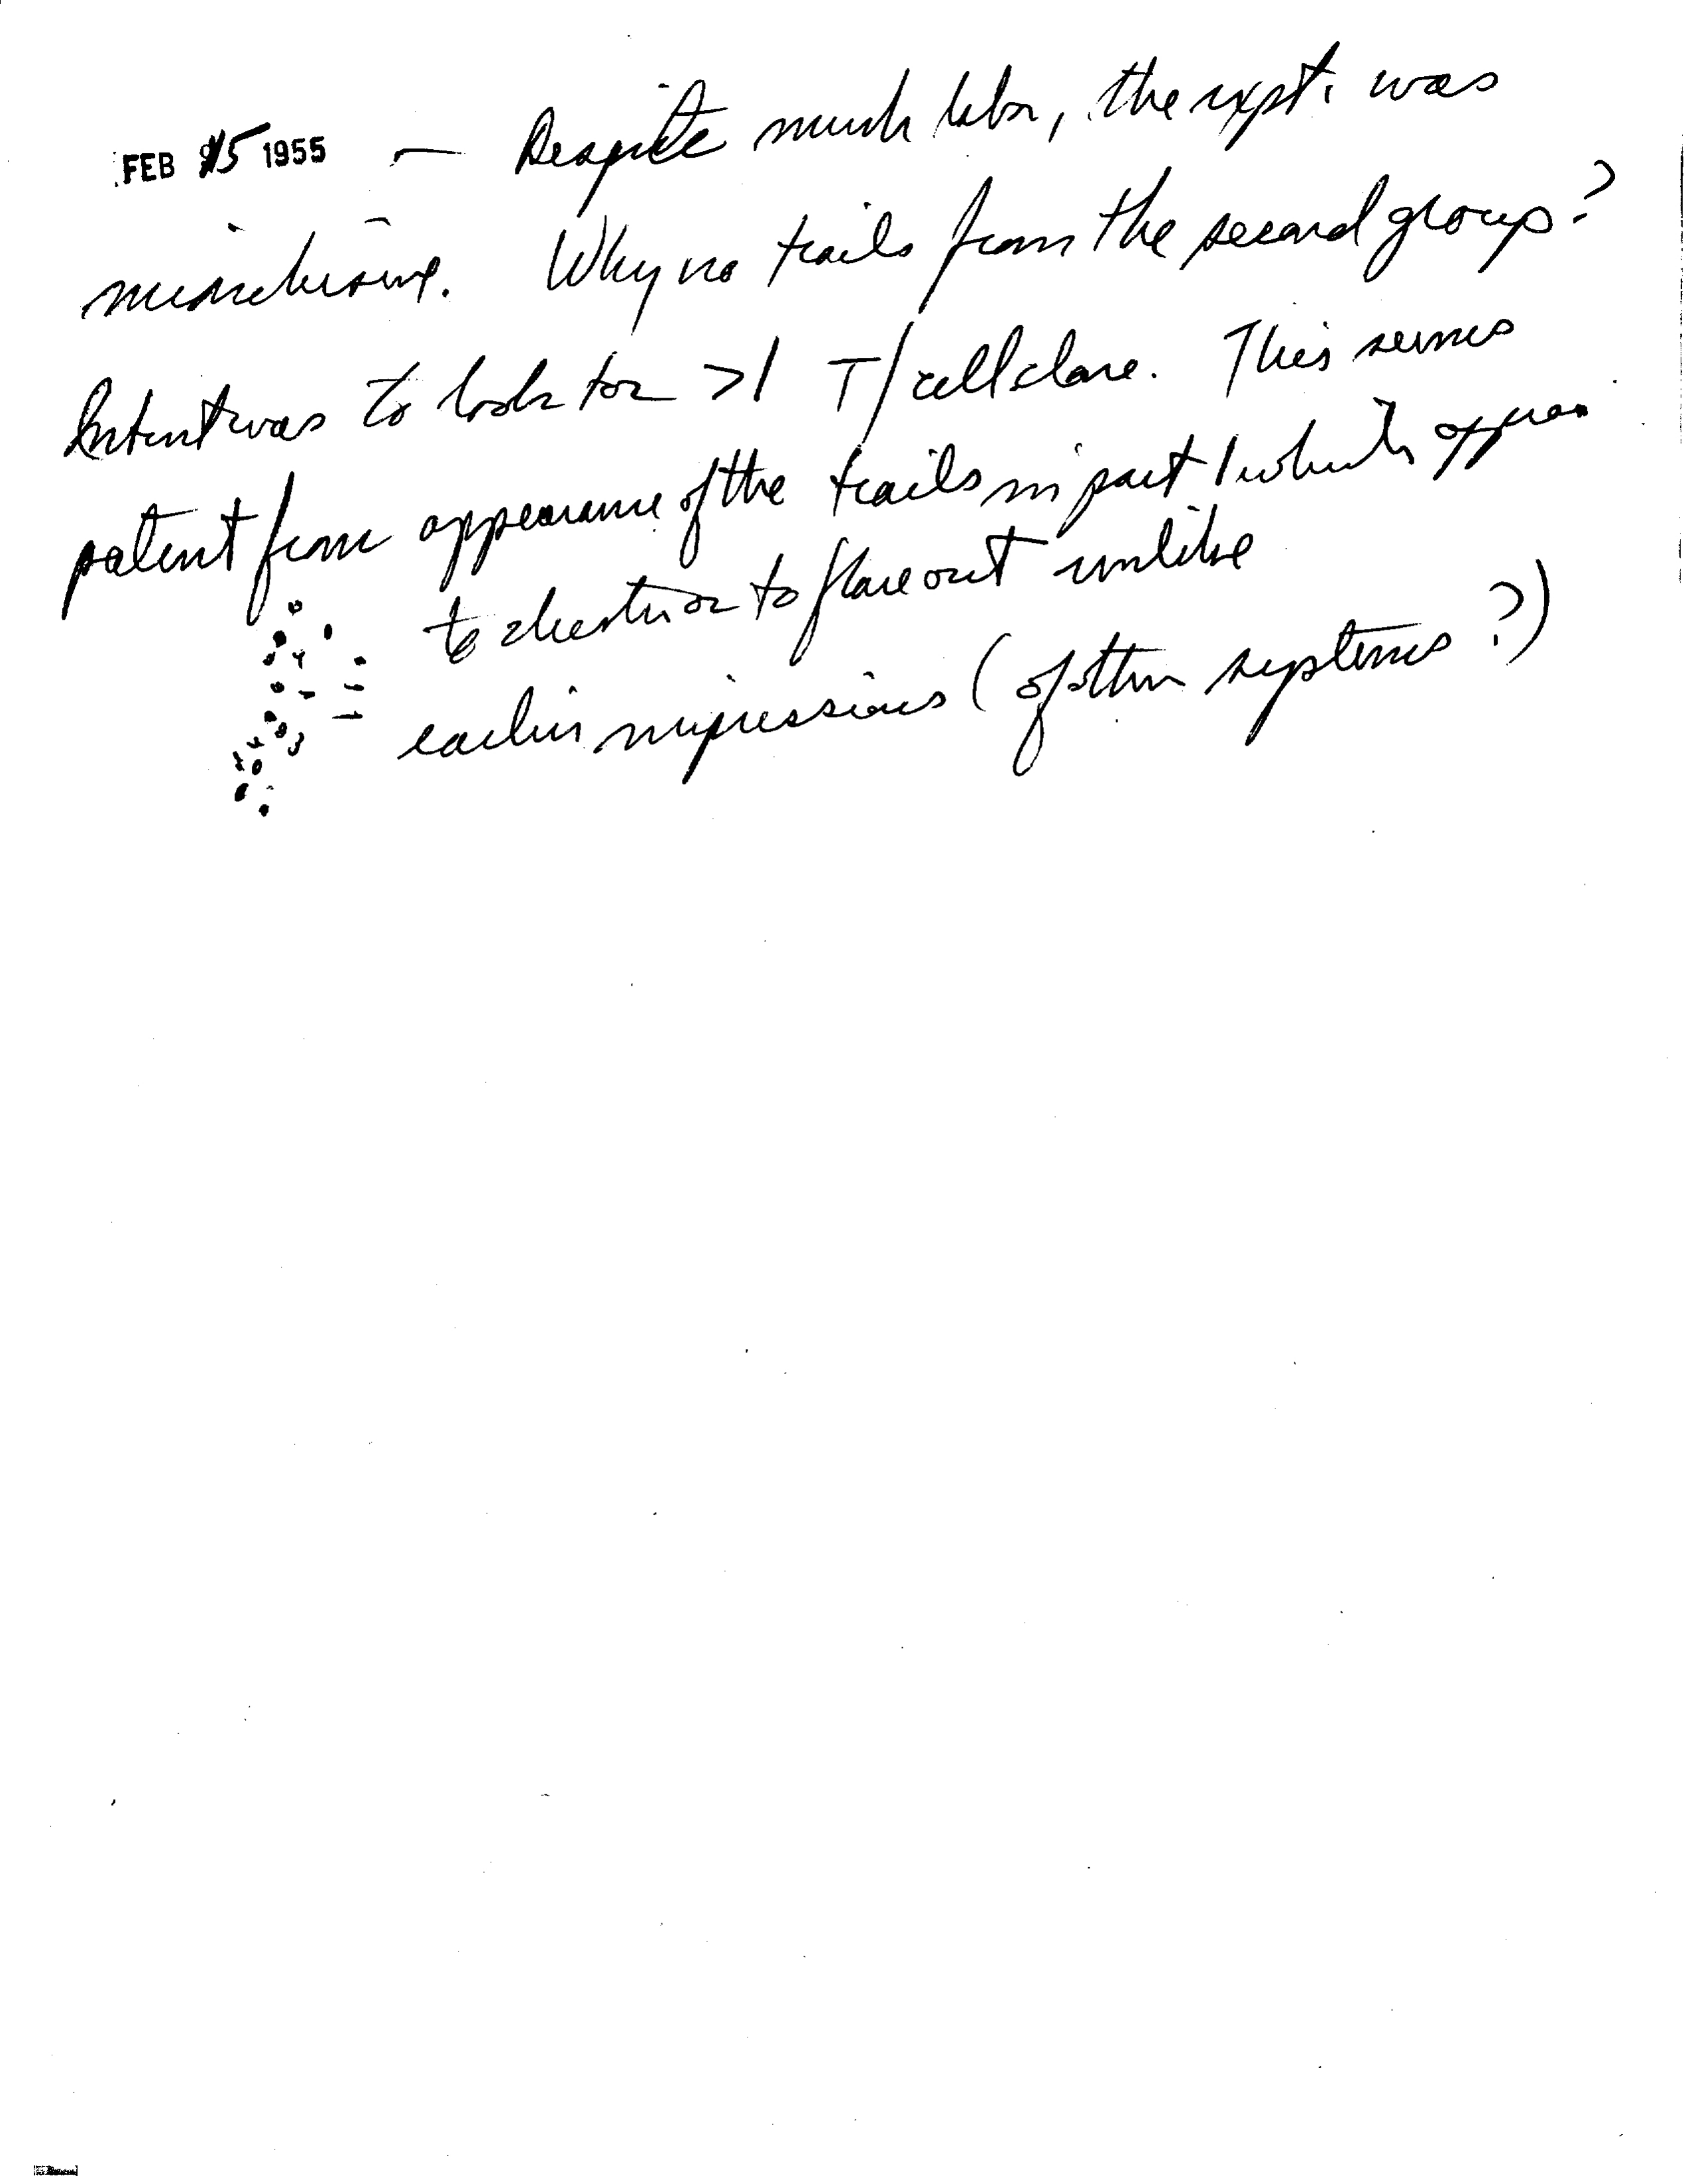 FEB 15 1955 — Despite much labor, the expt. was
inconclusive. Why no trails from the second group?
Intent was to look for >1 T/cell clone. This seems
patent from appearance of the trails in part 1 which appear
to shorten or to flare out unlike
earlier impressions (of other systems?)